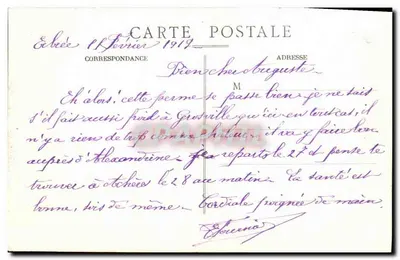 CARTE POSTALE
Erbrée 11 Février 1919
CORRESPONDANCE
ADRESSE
Bien cher Auguste
M
Eh alors! cette perme se passe bien. je ne sais
s'il fait aussi froid à qu'ici en tout cas, il
n'y a rien de trop il va y faire bon
auprès d'Alexandrine. Je reparts le 27 et pense te
trouver à le 28 au matin. Ta santé est
bonne, sois de même. Cordiale poignée de main.